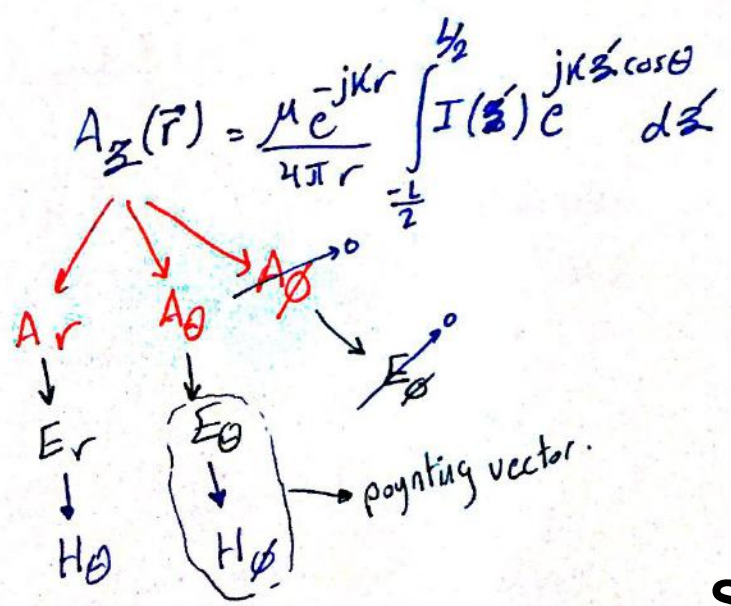 A_z(r⃗) = μe^{-jkr} / 4πr ∫_{-L/2}^{L/2} I(z′) e^{jkz′cosθ} dz′
A r A θ A ϕ → 0
E r E θ E ϕ → 0
H θ H ϕ → poynting vector.
S